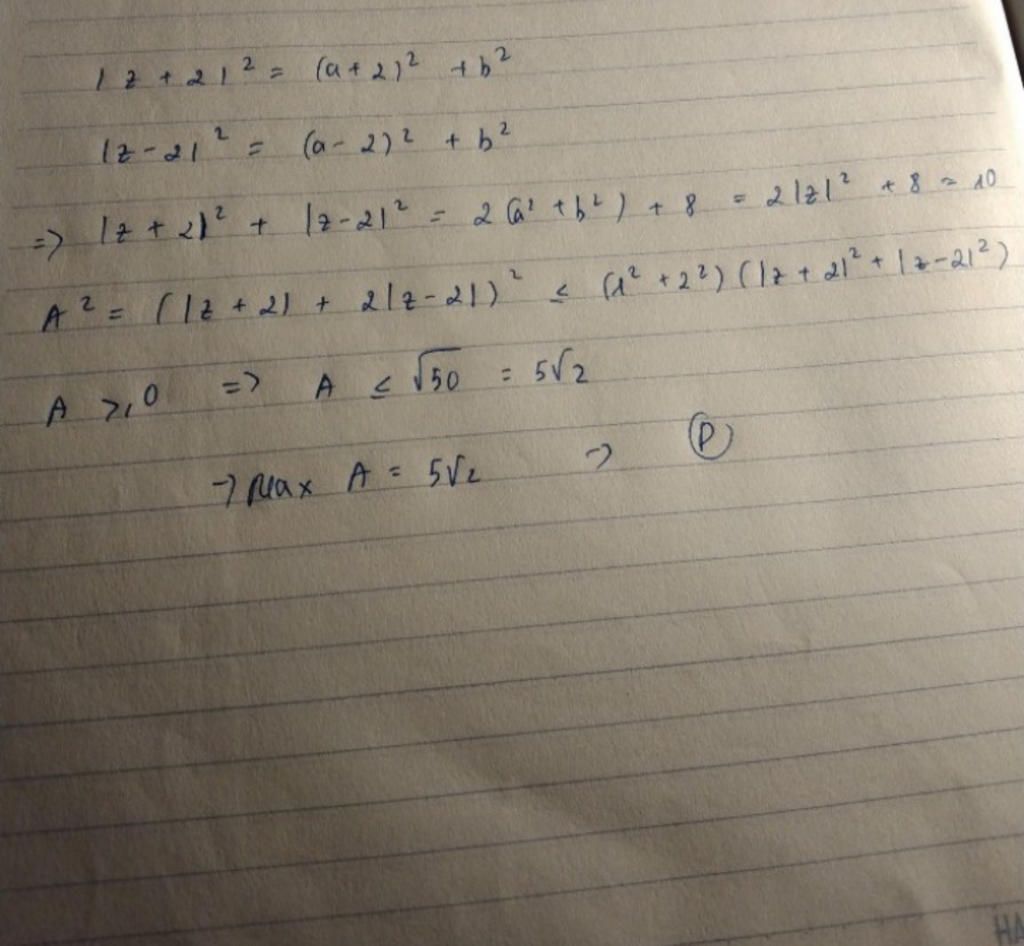 |z + 2|² = (a + 2)² + b²
|z - 2|² = (a - 2)² + b²
=> |z + 2|² + |z - 2|² = 2(a² + b²) + 8 = 2|z|² + 8 = 10
A² = (|z + 2| + 2|z - 2|)² ≤ (1² + 2²)(|z + 2|² + |z - 2|²)
A ≥ 0 => A ≤ √50 = 5√2
→ Max A = 5√2 → Ⓓ
HA